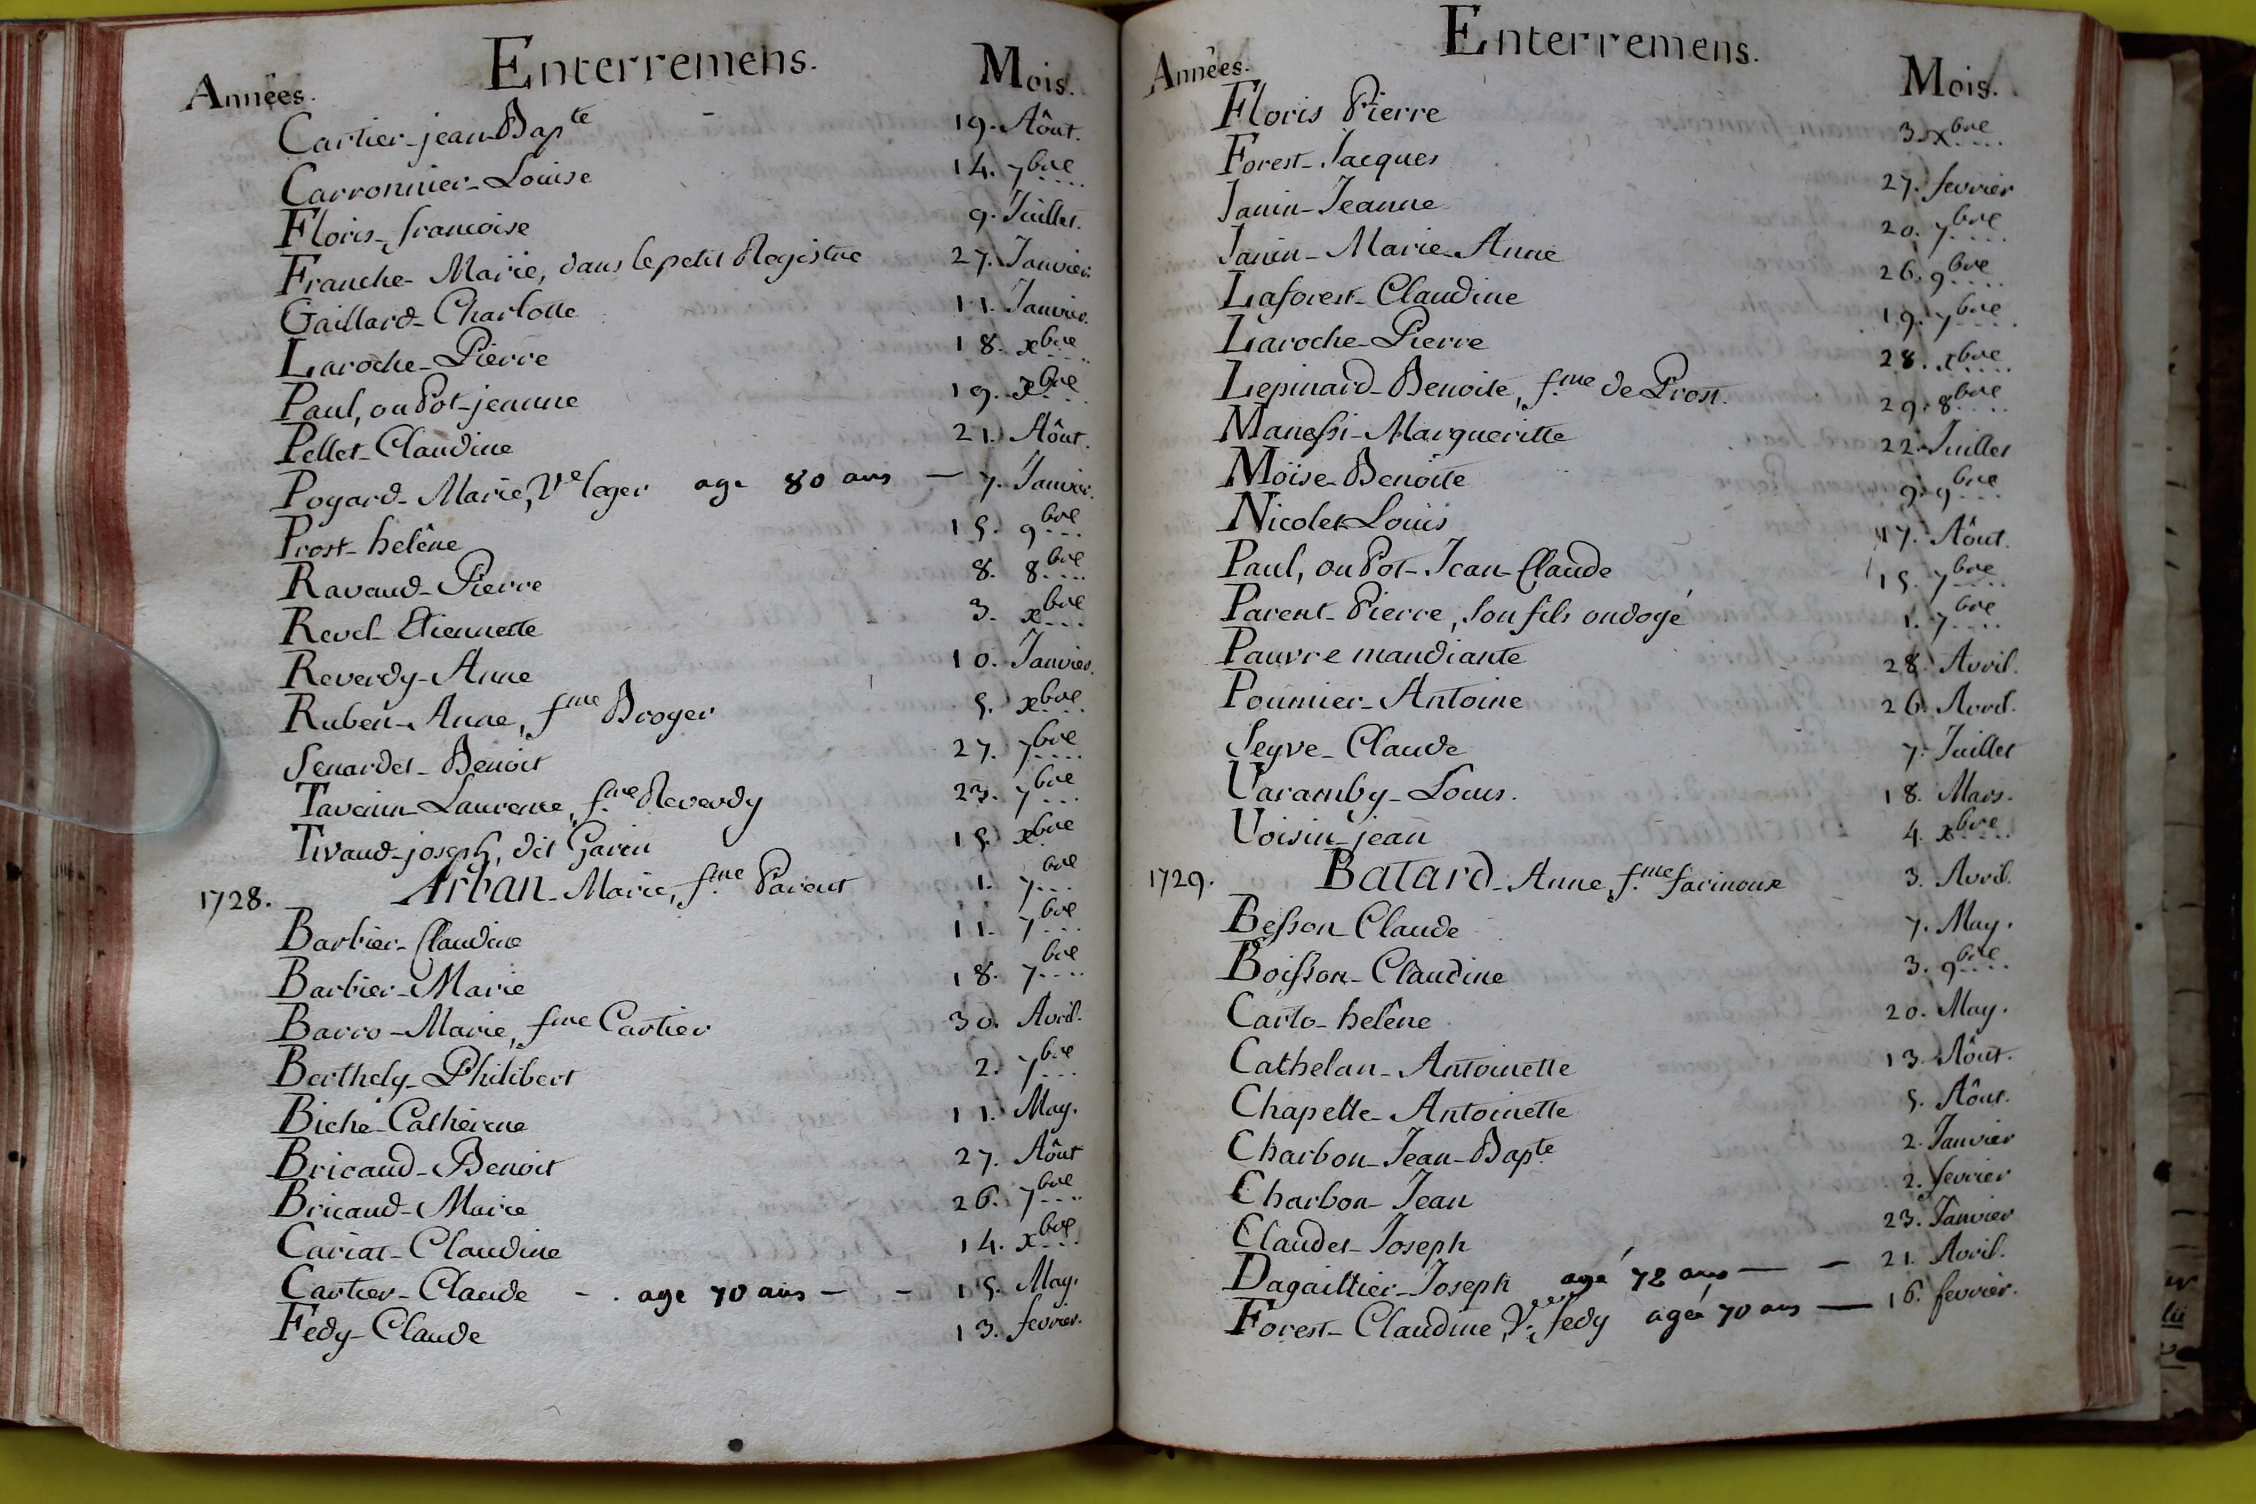 Enterremens.
Années. Mois.
Cartier-jean-Bapte 19. Aôut.
Carronnier-Louise 14. 7bre
Floris-francoise 9. Juillet.
Franche-Marie, dans le petit Registre 27. Janvier.
Gaillard-Charlotte 11. Janvier.
Laroche-Pierre 18. xbre
Paul, ou Pot-jeanne 19. xbre
Pellet-Claudine 21. Aôut.
Pogard-Marie, Ve leger age 80 ans — 7. Janvier.
Prost-helêne 15. 9bre
Ravaud-Pierre 8. 8bre
Revel-Etiennette 3. xbre
Reverdy-Anne 10. Janvier.
Ruben-Anne, fme Broger 5. xbre
Senardet-Benoit 27. 7bre
Tavenin-Laurence, fme Reverdy 23. 7bre
Tivaud-joseph, dit Garin 15. xbre
1728. Arban-Marie, fme Parent 1. 7bre
Barbier-Claudine 11. 7bre
Barbier-Marie 18. 7bre
Barro-Marie, fme Cartier 30. Avril.
Berthely-Philibert 2. 7bre
Biché-Catherine 11. May.
Bricaud-Benoit 27. Aôut
Bricaud-Marie 26. 7bre
Cariat-Claudine 14. xbre
Cartier-Claude - . age 70 ans - - 15. May.
Fedy-Claude 13. fevrier.
Enterremens.
Années. Mois.
Floris Pierre 3. xbre
Forest-Jacques 27. fevrier
Janin-Jeanne 20. 7bre
Janin-Marie-Anne 26. 9bre
Laforest-Claudine 19. 7bre
Laroche-Pierre 28. xbre
Lepinard-Benoite, fme de Prost. 29. 8bre
Manessi-Margueritte 22. Juillet
Moïse-Benoite 9. 9bre
Nicolet-Louis 17. Aôut.
Paul, ou Pot-Jean-Claude 15. 7bre
Parent-Pierre, son fils ondoyé 1. 7bre
Pauvre mandiante 28. Avril.
Poumier-Antoine 26. Avril.
Seyve-Claude 7. Juillet
Varamby-Louis. 18. Mars.
Voisin-jean 4. xbre
1729. Batard-Anne, fme farinoux 3. Avril.
Besson-Claude 7. May.
Boisson-Claudine 3. 9bre
Carto-helêne 20. May.
Cathelan-Antoinette 13. Aôut.
Chapelle-Antoinette 5. Aôut.
Charbon-Jean-Bapte 2. Janvier
Charbon-Jean 2. fevrier
Claudet-Joseph 23. Janvier
Dagaillier-Joseph agé 72 ans — - 21. Avril.
Forest-Claudine, Ve fedy agée 70 ans — 16. fevrier.